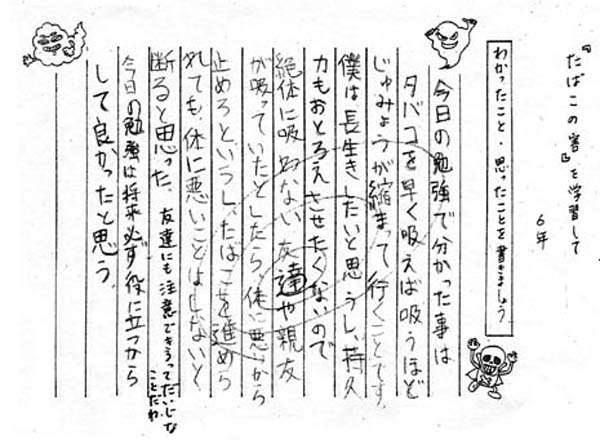 『たばこの害』を学習して
6年
わかったこと・思ったことを書きましょう。
今日の勉強で分かった事は
タバコを早く吸えば吸うほど
じゅみょうが縮まって行くことです。
僕は長生きしたいと思うし、持久
力もおとろえさせたくないので
絶体に吸わない友達や親友
が吸っていたとしたら、体に悪いから
止めろというし、たばこを進めら
れても、体に悪いことはしないと
断ると思った。
友達にも注意できるってだいじな
ことだね
今日の勉強は将来必ず役に立つから
して良かったと思う。